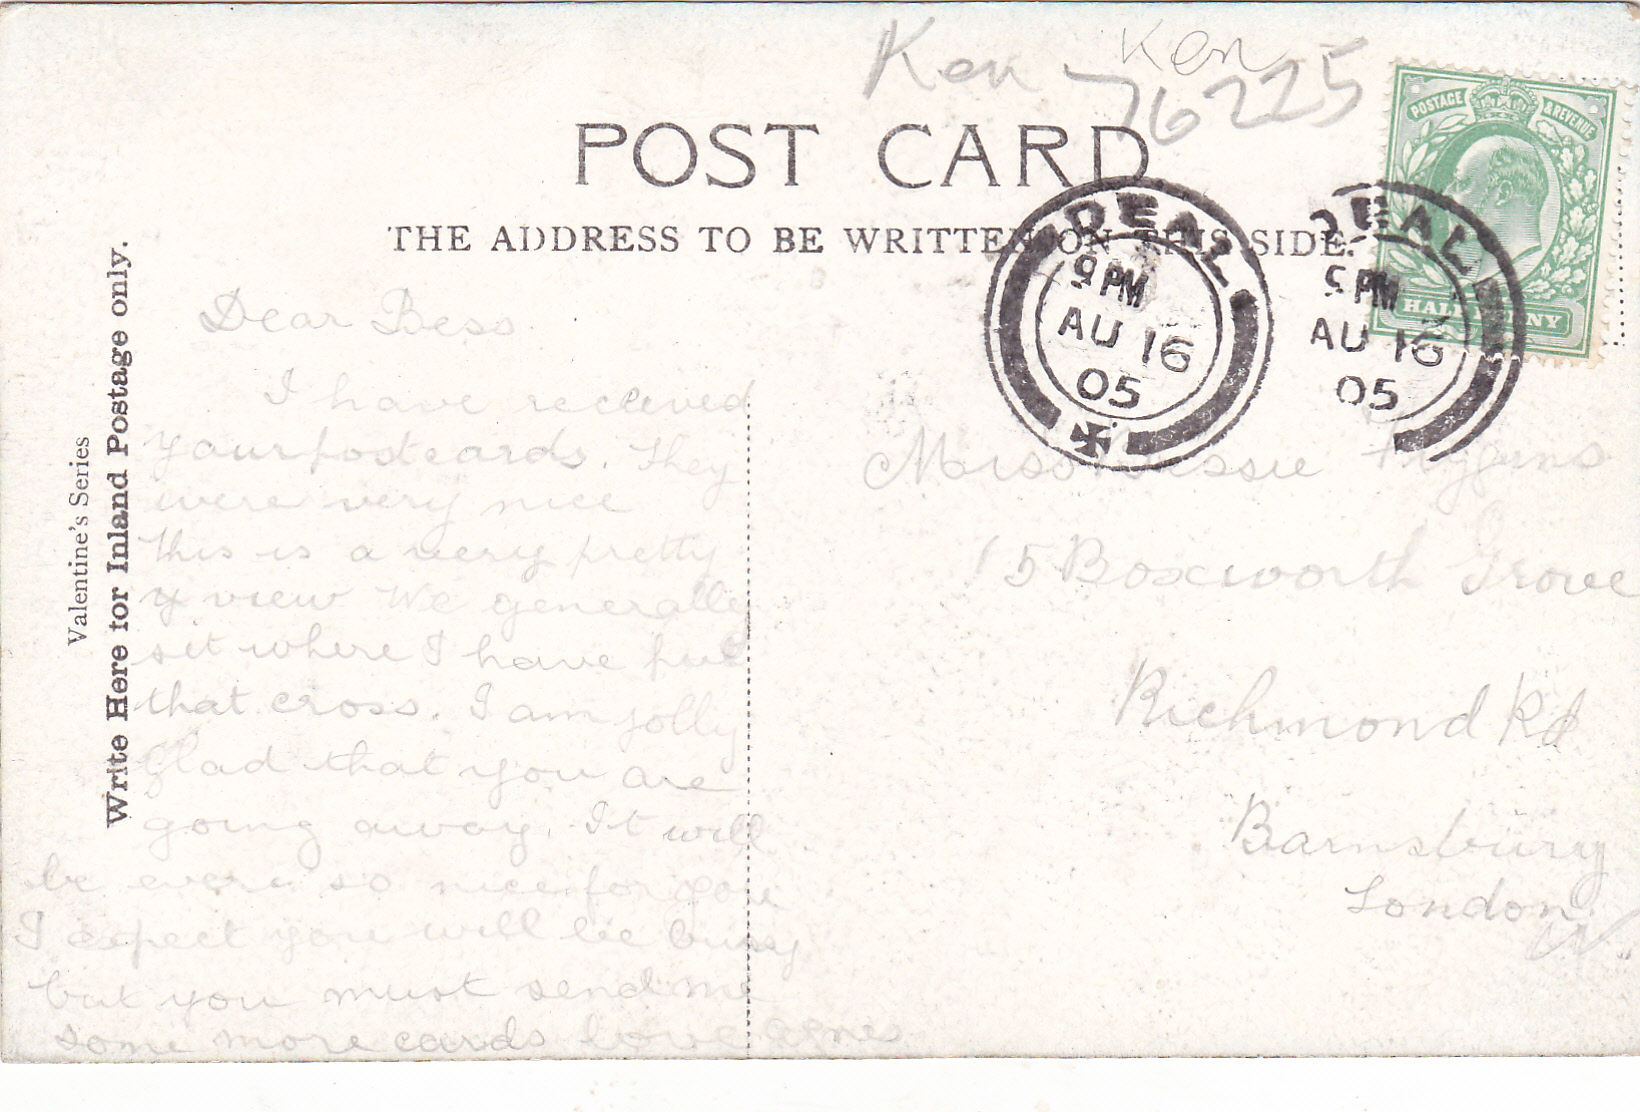 Ken
Ken
76225
POSTAGE & REVENUE
HALF PENNY
POST CARD
THE ADDRESS TO BE WRITTEN ON THIS SIDE.
DEAL
9 PM
AU 16
05
DEAL
9 PM
AU 16
05
Valentine's Series
Write Here for Inland Postage only.
Dear Bess
I have received
your postcards. They
were very nice
This is a very pretty
view We generally
sit where I have put
that cross. I am jolly
glad that you are
going away. It will
be ever so nice for you
I expect you will be busy
but you must send me
some more cards love Agnes
Miss Bessie
15 Boxworth Grove
Richmond Rd
Barnsbury
London
N.